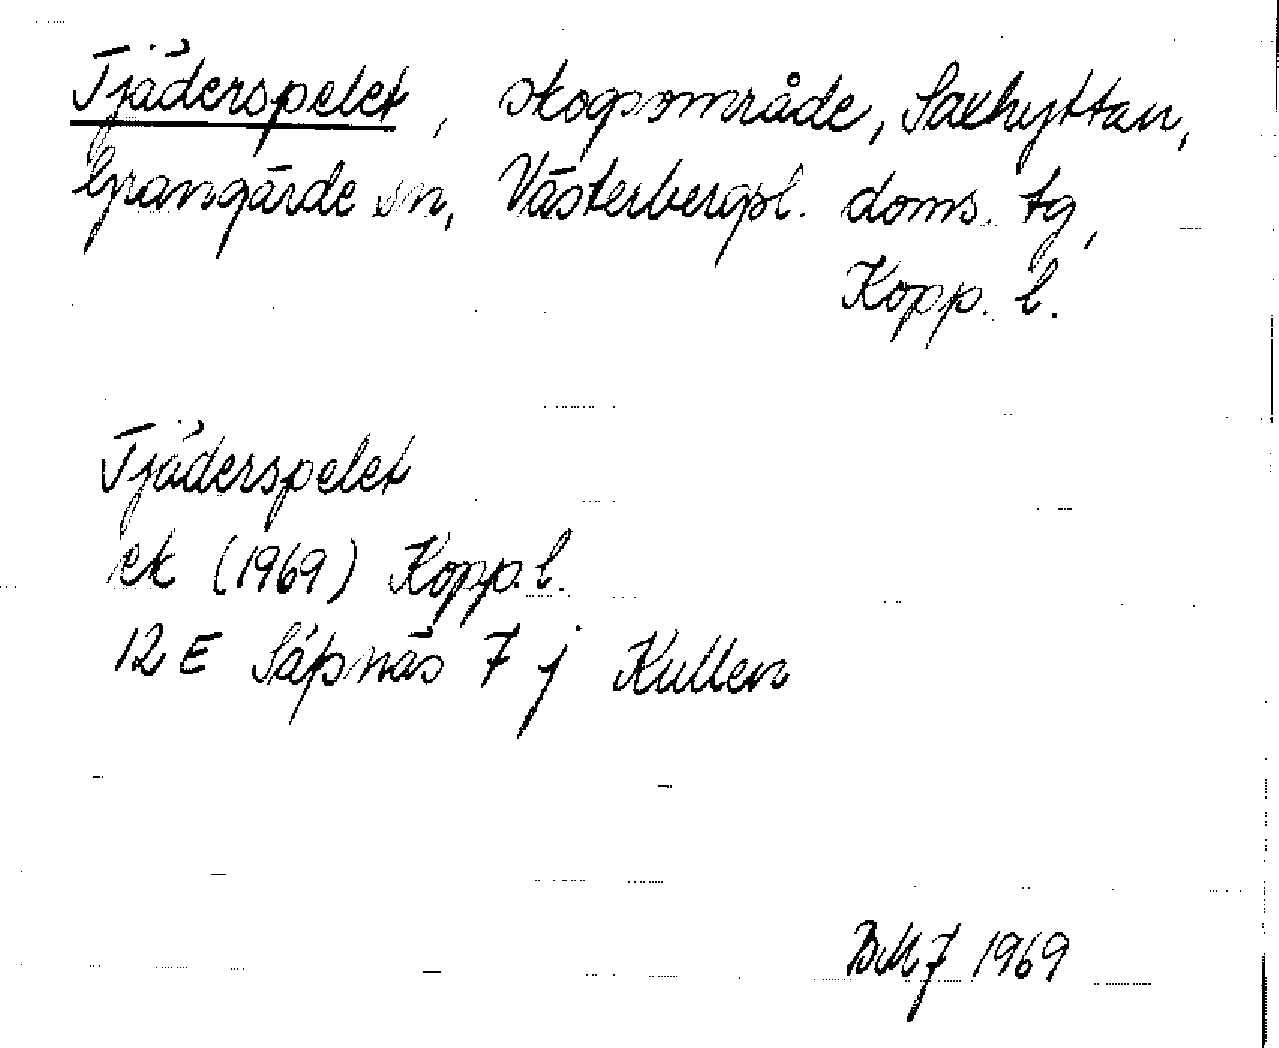 Tjäderspelet, skogsområde, Saxhyttan,
Grangärde sn, Västerbergsl. doms. tg,
Kopp. l.
Tjäderspelet
ek (1969) Kopp. l.
12 E Säfsnäs 7 j Kullen
1969